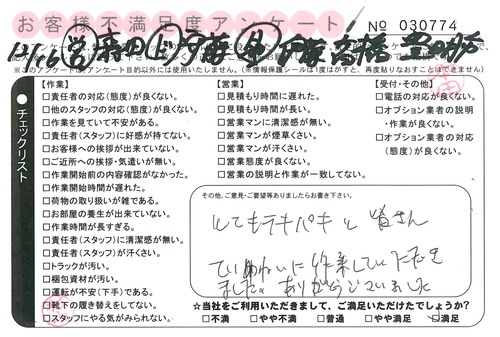 お客様不満足度アンケート
No 030774
12/16 営 森田 上 斉藤 作 伊藤 高橋
※このアンケートはアンケート目的以外には使用いたしません。(※情報保護シールは1度はがすと、再度貼りなおすことはできません)
チェックリスト
【作業】
□責任者の対応(態度)が良くない。
□他のスタッフの対応(態度)が良くない。
□作業を見ていて不安がある。
□責任者(スタッフ)に好感が持てない。
□お客様への挨拶が出来ていない。
□ご近所への挨拶・気遣いが無い。
□作業開始前の内容確認がなかった。
□作業開始時間が遅れた。
□荷物の取り扱いが雑である。
□お部屋の養生が出来ていない。
□作業時間が長すぎる。
□責任者(スタッフ)に清潔感が無い。
□責任者(スタッフ)が汗くさい。
□トラックが汚い。
□梱包資材が汚い。
□運転が不安(下手)である。
□靴下の履き替えをしてない。
□スタッフにやる気がみられない。
【営業】
□見積もり時間に遅れた。
□見積もり時間が長い。
□営業マンに清潔感が無い。
□営業マンが煙草くさい。
□営業マンが汗くさい。
□営業態度が良くない。
□営業の説明と作業が一致してない。
【受付・その他】
□電話の対応が良くない。
□オプション業者の説明
・作業が良くない。
□オプション業者の対応
(態度)が良くない。
その他、ご意見・ご要望等ありましたらお書き下さい。
とてもテキパキと皆さん
ていねいに作業していただき
ました。ありがとうございました
☆当社をご利用いただきまして、ご満足いただけたでしょうか?
□不満 □やや不満 □普通 □やや満足 ☑満足